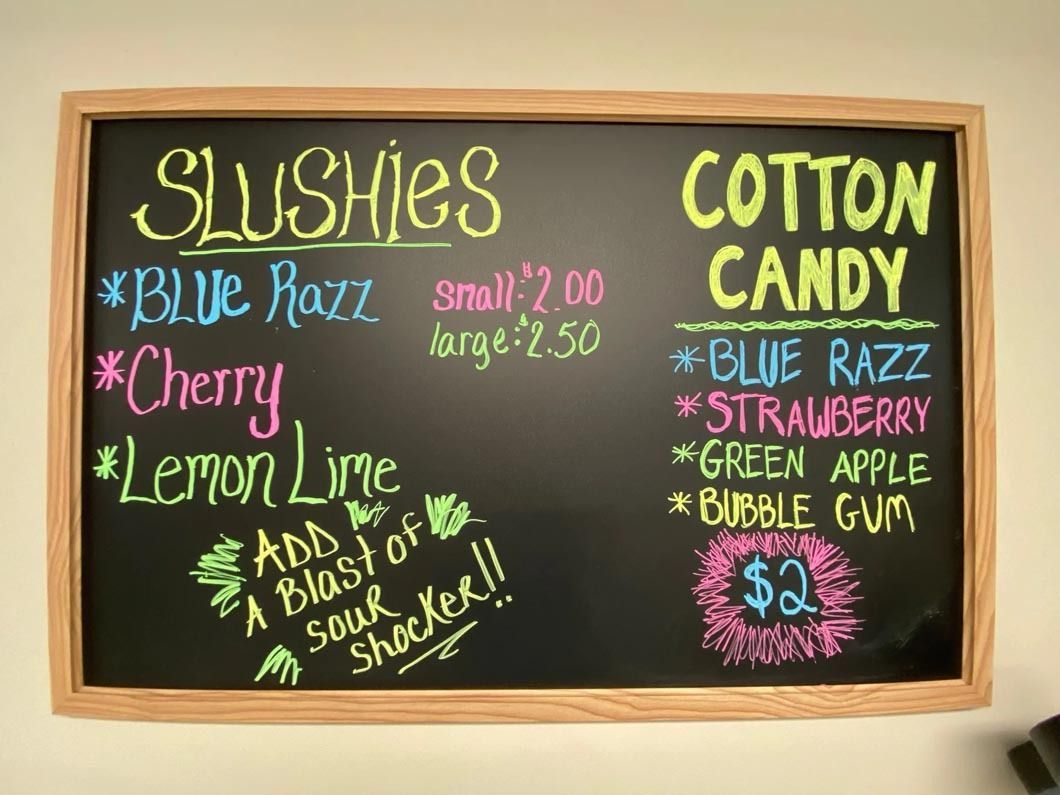 SLUSHies
*BLUe Razz
*Cherry
*Lemon Lime
small: $2.00
large: $2.50
ADD
A Blast of
sour
shocker!!
COTTON
CANDY
*BLUE RAZZ
*STRAWBERRY
*GREEN APPLE
*BUBBLE GUM
$2